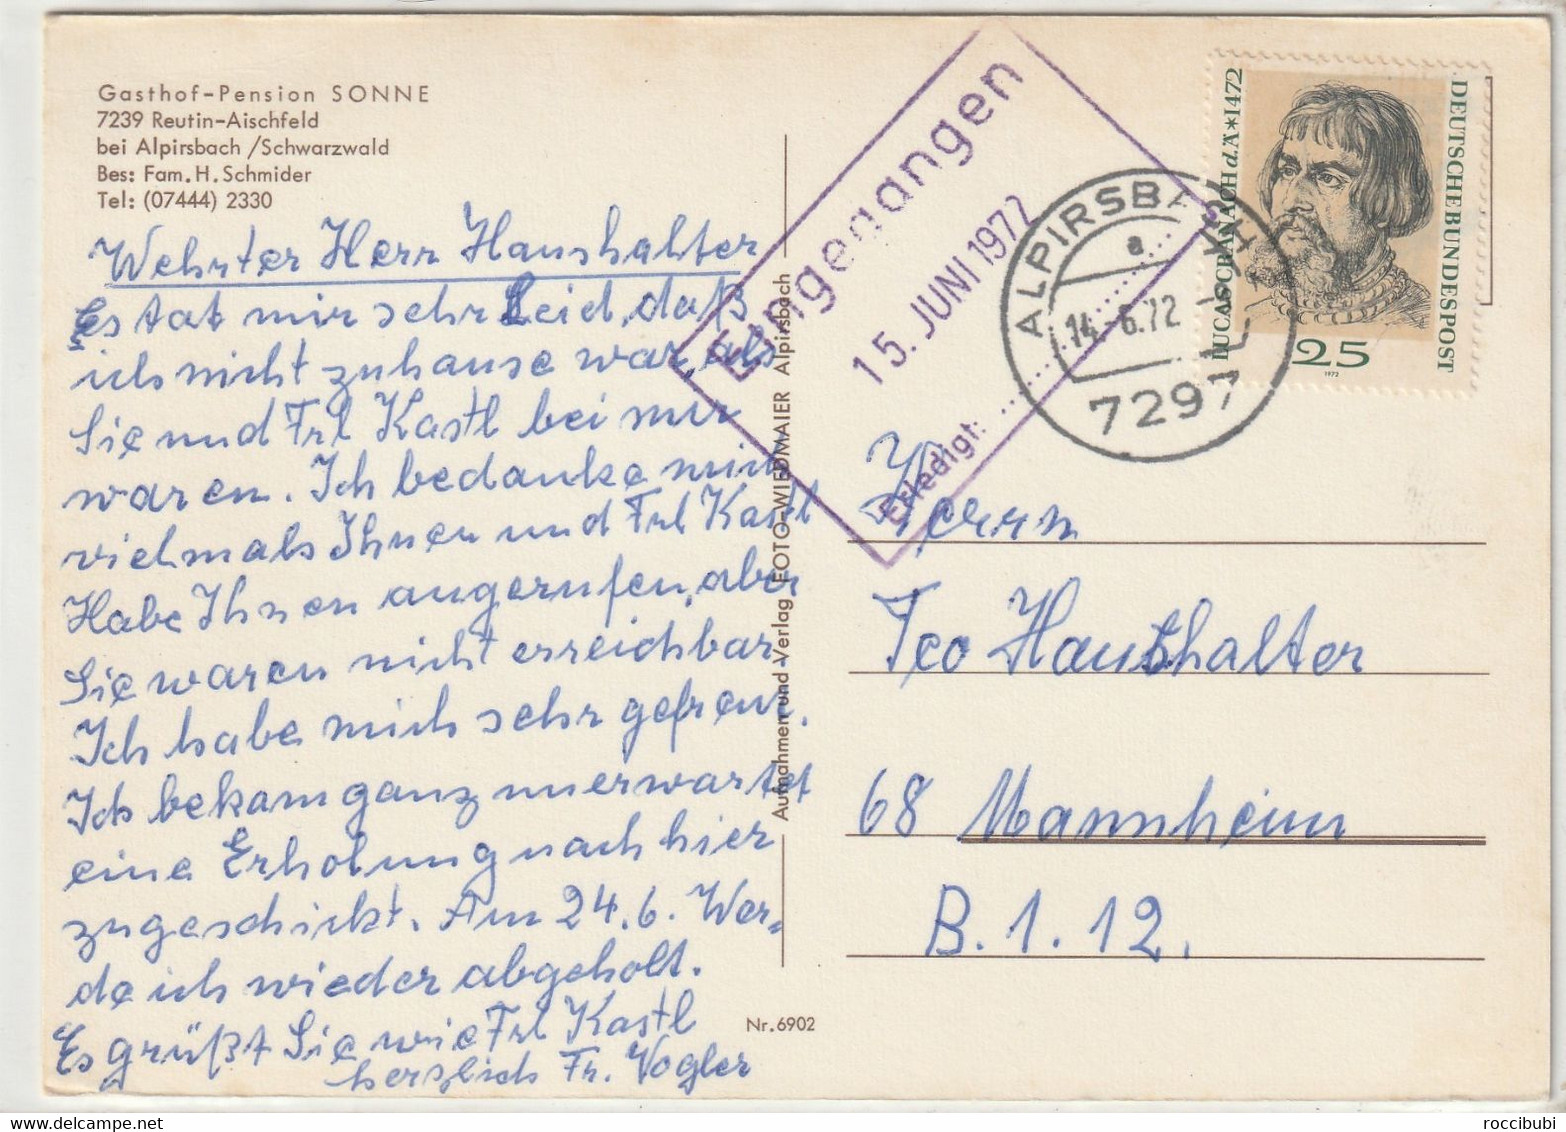 Gasthof-Pension SONNE
7239 Reutin-Aischfeld
bei Alpirsbach /Schwarzwald
Bes: Fam. H. Schmider
Tel: (07444) 2330
Wehrter Herr Haushalter
Es tat mir sehr Leid, daß
ich nicht zuhause war, als
Sie und Frl Kastl bei mir
waren. Ich bedanke mich
vielmals Ihnen und Frl Kastl
Habe Ihnen angerufen, aber
Sie waren nicht erreichbar
Ich habe mich sehr gefreut.
Ich bekam ganz unerwartet
eine Erholung nach hier
zugeschickt. Am 24.6. Wer-
de ich wieder abgeholt.
Es grüßt Sie wie Frl Kastl
herzlich Fr. Vogler
Aufnahmen und Verlag FOTO-WIEDMAIER Alpirsbach
Nr. 6902
Eingegangen
15. JUNI 1972
Erledigt:
ALPIRSBACH
a
14.-6.72
7297
LUCAS CRANACH d.Ä * 1472
DEUTSCHE BUNDESPOST
25
1972
Herrn
Teo Haushalter
68 Mannheim
B. 1. 12.
roccibubi